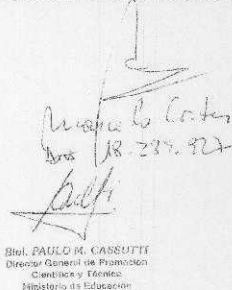 Marcelo Cortez
DNI 18.239.927
Biol. PAULO M. CASSUTTI
Director General de Promoción
Científica y Técnica
Ministerio de Educación